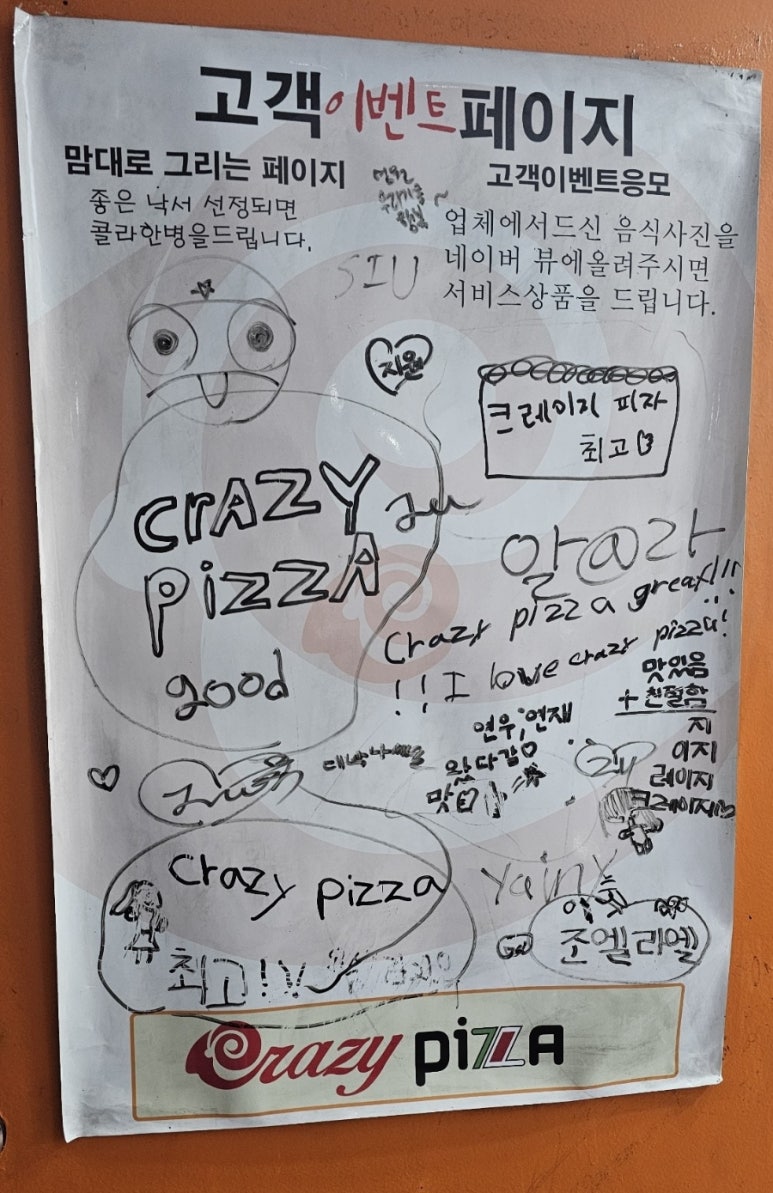 고객이벤트페이지
맘대로 그리는 페이지
좋은 낙서 선정되면
콜라한병을드립니다.
고객이벤트응모
업체에서드신 음식사진을
네이버 뷰에올려주시면
서비스상품을 드립니다.
SIU
지원
크레이지 피자
최고
CrAZY
pizzA
good
알@라
Crazy pizza great!!!
!! I love crazy pizza!
맛있음
+ 친절함
지
이지
레이지
크레이지
연우,연재
왔다감♡
맛
Crazy pizza
최고!
yainy
조엘리엘
Crazy pizza